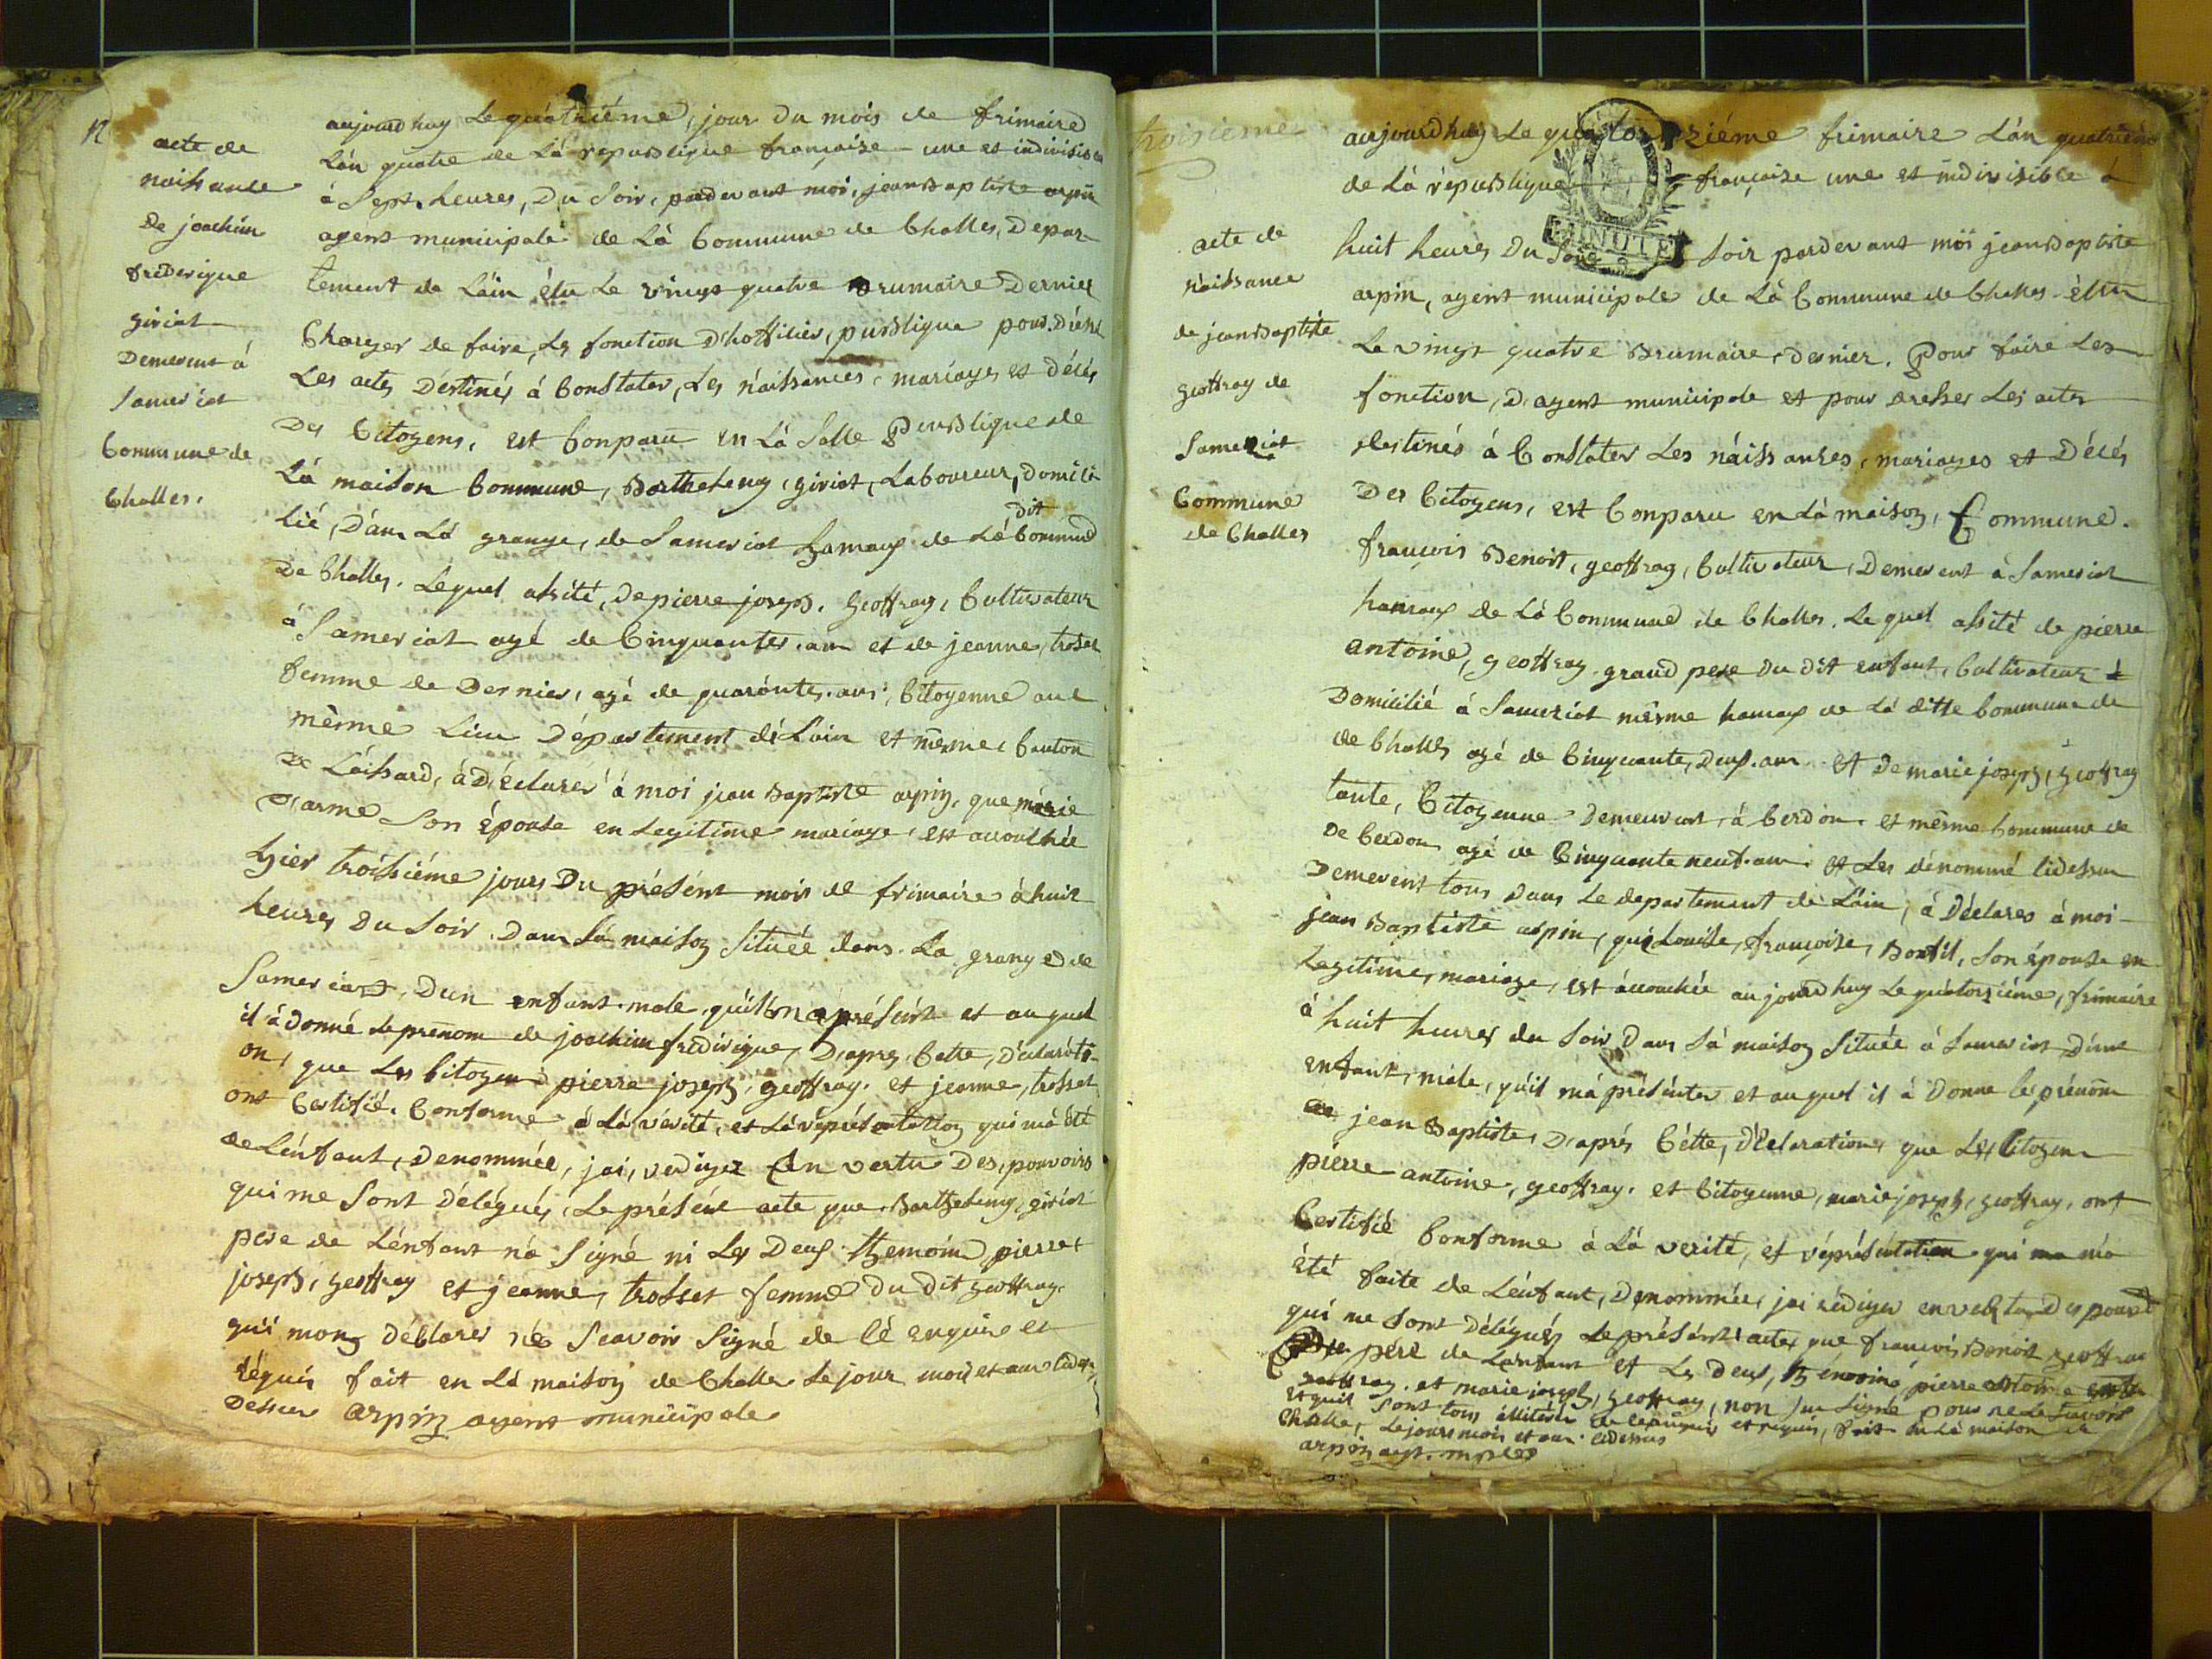 12
acte de
naissance
De joachim
frederique
giriat
Demerent à
Sameriat
Commune de
Challes.
aujourd huy Le quátriéme, jour Du mois de frimaire
Lán quatre de Lá republique françaíse - une et indivisible
à Sept. heures, Du Soir, pardevant moi, jean Baptiste arpin
agent municipale de Lá Commune de Challes, Depar
tement de Láin élu Le vingt quatre Brumaire Dernier
Charger de faire, Les fonction D'hofficier, publique pour
Les actes Déstinés à Constater, Les náissances, mariages et Décés
Des Citoyens, est Conparu en Lá Salle Publique de
Lá maison Commune, Barthelemy, giriat, Laboureur, Domici
lié, Dans Lá grange, de Sameriat hamaux de Lá dit Commune
De Challes. Lequel assité, De pierre joseph, geoffray, Cultivateur
á Sameriat agé de Cinquantes, ans et de jeanne, trosset
femme de Dernier, agé de quarántes, ans, Citoyenne aut
même Lieu Département dé Lain et même, Canton
De Láissard, à Déclarér à moi jean Baptiste arpin, que marie
Darme Son épouse en Legitime mariage, est accouchée
hier troisiéme jours Du présént mois de frimaire à huit
heures Du Soir. Dans Sá maison Située dans. La grange de
Sameriat, Dun enfant. male, quil m'a présént et auquel
il à donné Le prenom de joachim frederique, D'apres, Cette, Déclaráti-
on, que Les Citoyen pierre joseph, geoffray. et jeanne, trosset
ont Certifié. Conforme à Lá vérité, et Lá représentation qui má été
de Lénfant, Denommée, jai, rediger En vertu Des, pouvoirs
qui me Sont Délégués, Le présént acte que Barthelemy, giriat
pere de Lénfant ná Signé ni Les Deux. themoin pierre
joseph, geoffray et jeanne, trosset femme Du Dit geoffray.
qui mons Déclarer né Scavoir Signé de lé enquire et
réquis fait en Lá maison de Challe Le jour mois et ans cides
Dessus arpin agent municipale
troisieme
acte de
náissance
de jean Baptiste
geoffray de
Sameriat
Commune
de Challes
aujourdhuy Le quatorziéme frimaire Lán quatrieme
de Lá république françaíse une et indivisible à
MINUTE
huit heures Du Soir Soir pardevant moi jean Baptiste
arpin, agent municipale de Lá Commune de Challes - élu
Le vingt quatre Brumaire, dernier. Pour faire Les
fonction, D'agent municipale et pour dresser Les actes
destinés á Constater Les náissances, mariages et Décés
Des Citoyens, est Conparu en Lá maison, Commune.
françois Benoit, geoffray, Cultivateur, Demerent à Sameriat
hamaux de Lá Commune de Challes. Lequel assité de pierre
antoine, geoffray. grand pere Du Dit enfant, Cultivateur
Domicilié à Sameriat même hamaux de Lá ditte Commune de
de Challes agé de Cinquante, Deux. ans et De marie joseph, geoffray
tante, Citoyenne Demeurent, à Cerdon. et même Commune de
De Cerdon agé de Cinquante neuf. ans. et Les dénommé cidessus
Demerent tous Dans Le departement de Láin, à Déclares à moi-
jean Baptiste arpin, que Louise, françoise, Bonfil, Son épouse en
Legitime, mariage, est áccouchée aujourdhuy Le quátorziéme, frimaire
à huit heures du Soir, Dans Sá maison Située à Sameriat D'une
enfant, mále, quil má présénter et auquel il à Donne le prénom
de jean Baptiste, D'aprés Cétte, Déclaration, que Les Citoyen
pierre antoine, geoffray. et Citoyenne, marie joseph, geoffray, ont
Certifié Conforme á Lá verité, et réprésentation qui ma má
été faite de Lénfant, Denommée, jai rédiger en vertu Des pouvoi
qui me Sont Délégués Le présént acte, que françois Benoit geoffray
pére de Lanfant et Les Deux, themoins pierre antoine
geoffray. et marie joseph, geoffray, non Signé pour ne Le Savoir
et quil Sont tous et requis, fait en Lá maison de
Challe, Le jours mois et ans cidessus
arpin agt. mple